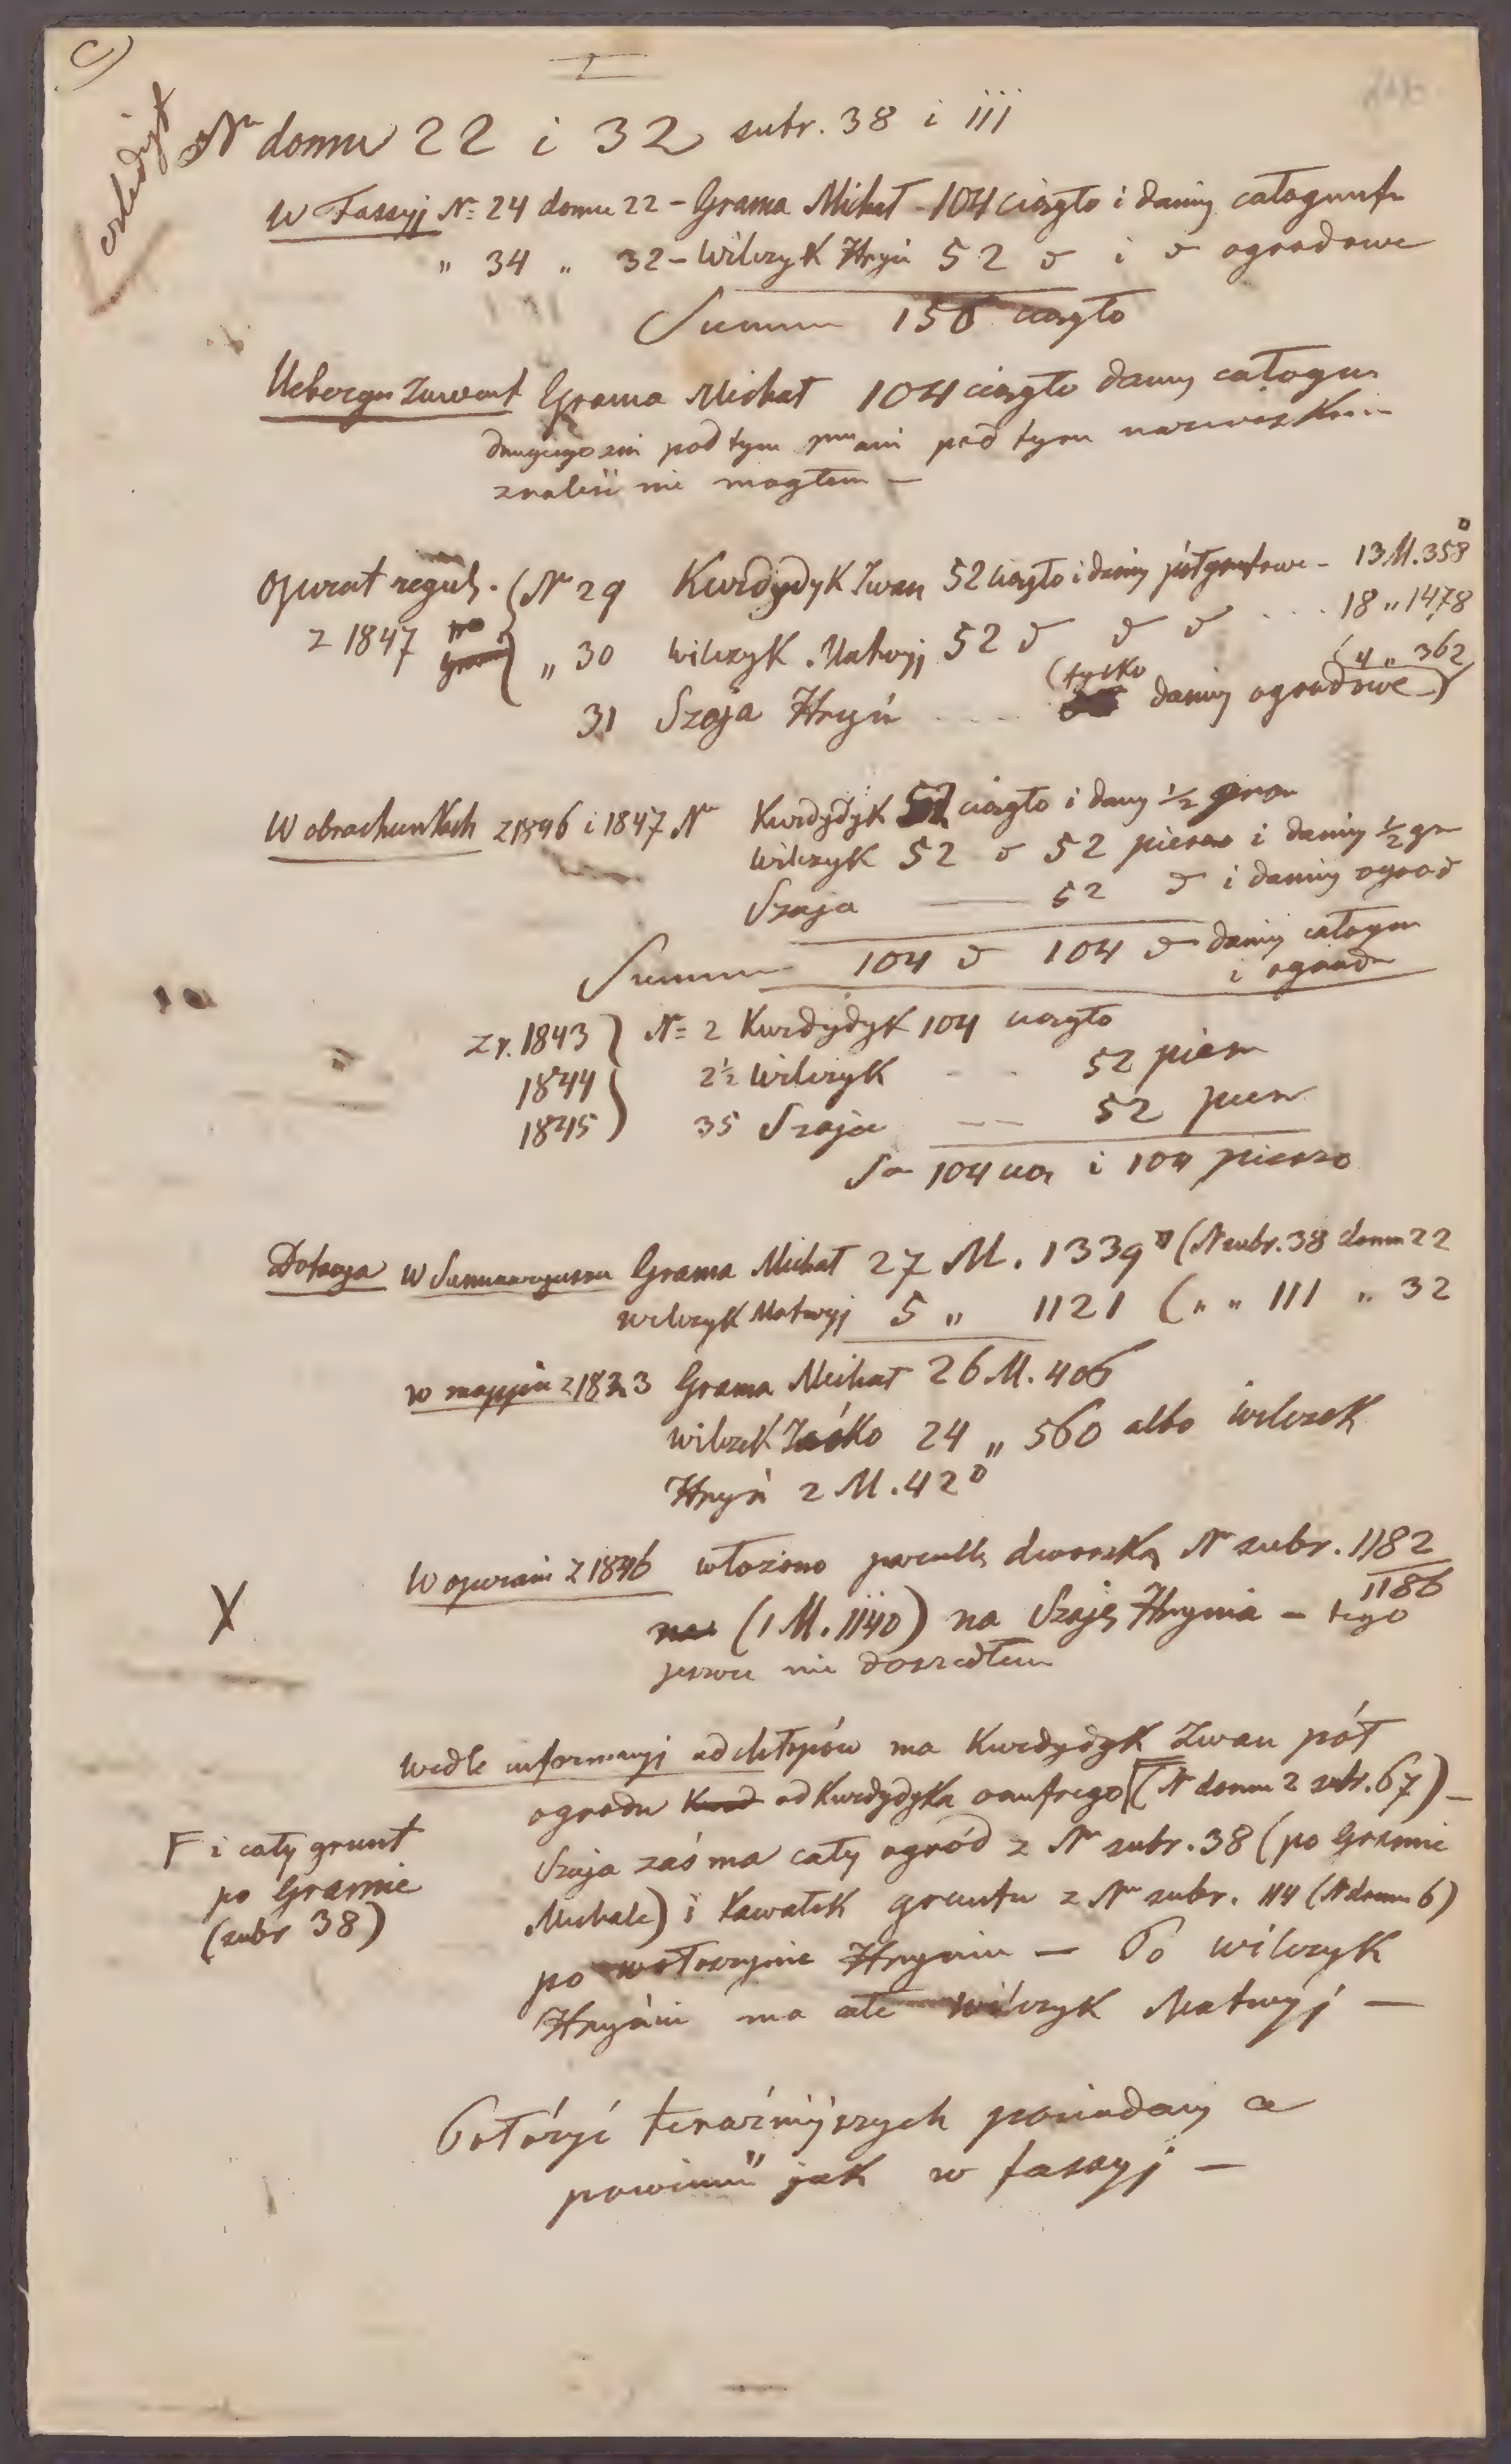 c)
I
Nr domu 22 i 32 subr. 38 i 111
W Fassyj N= 24 domu 22 – Grama Michał – 104 ciągło i daniny całogrunt
" 34 " 32 – Wilczyk Hryń 52 ⁓ i ⁓ ogrodowe
Summa 156 ciągło
Uebergs Invent Grama Michał 104 ciągło daniny całogrun
ani pod tym ani pod tym nazwiskiem
znaleść nie mogłem –
Operat reguł. (Nr 29 Kurdydyk Iwan 52 ciągło i daniny półgruntowe – 13 M. 358□
z 1847 " 30 Wilczyk Matwij 52 ⁓ ⁓ ⁓ ... 18 " 1478
(4 " 362
31 Szaja Hryń .... (tylko daniny ogrodowe)
W obrachunkach z 1846 i 1847 Nr Kurdydyk 52 ciągło i dany ½ grun
Wilczyk 52 ⁓ 52 pieszo i daniny ½ gr
Szaja — 52 ⁓ i daniny ogrod
Summa 104 ⁓ 104 ⁓ daniny całogrun
i ogrod
z r. 1843 ) N= 2 Kurdydyk 104 ciągło
1844 2½ Wilczyk - - 52 piesz
1845 ) 35 Szaja -- 52 piesz
Sa 104 cią i 104 pieszo
Dotacya w Summaryuszu Grama Michał 27 M. 1339□ (N subr. 38 domu 22
Wilczyk Matwyj 5 " 1121 ( " " 111 " 32
w mappie z 1823 Grama Michał 26 M. 406
Wilczek Iaśko 24 " 560 albo Wilczek
Hryń 2 M. 42□
W operacie z 1846 włożono parcellę dworską Nr subr. 1182
1186
na (1 M. 1140) na Szaję Hrynia – tego
jeszcze nie doszedłem
X
Wedle informacyj od chłopów ma Kurdydyk Iwan pół
ogrodu Kurd od Kurdydyka Γ (N domu 2 subr. 67) –
Szaja zaś ma cały ogród z Nr subr. 38 (po Gramie
Michale) i kawałek gruntu z Nr subr. 114 (N domu 6)
po Wołoszynie Hryniu – Po Wilczyk
Hryńiu ma całe Wilczyk Matwyj –
Γ i cały grunt
po Gramie
(subr 38)
Położyć teraźniejszych posiadaczy a
powinność jak w fassyj –